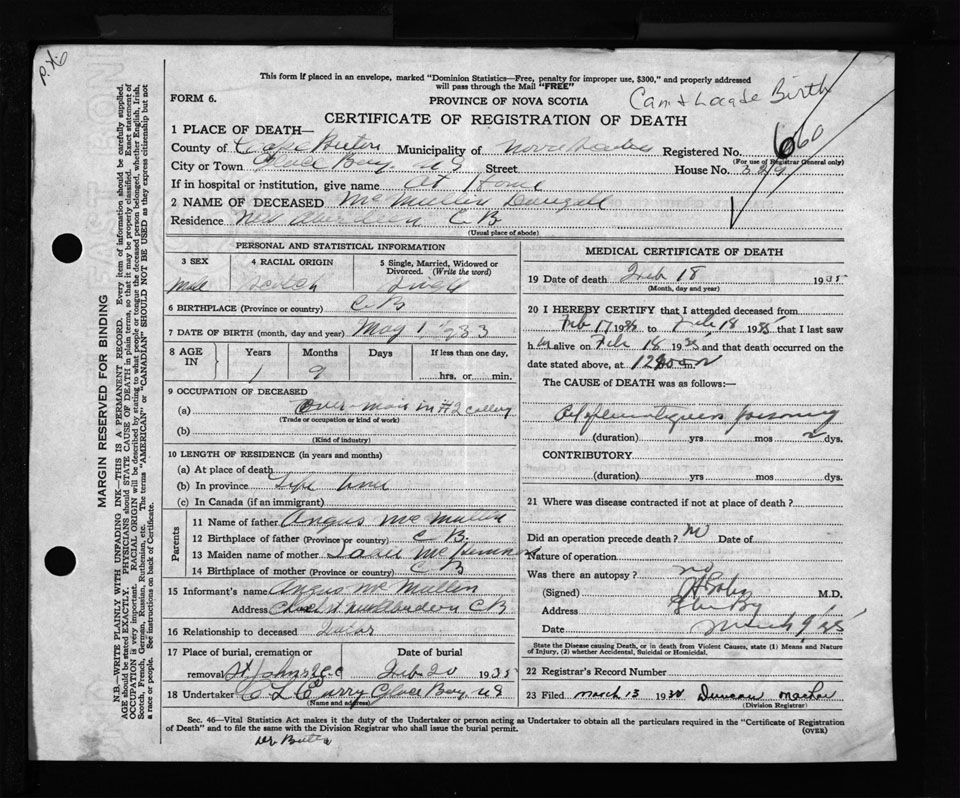 This form if placed in an envelope, marked "Dominion Statistics—Free, penalty for improper use, $300," and properly addressed
will pass through the Mail "FREE"
FORM 6.
PROVINCE OF NOVA SCOTIA
Birth
CERTIFICATE OF REGISTRATION OF DEATH
1 PLACE OF DEATH—
County of Cape Breton Municipality of Nova Scotia Registered No.
(For use of Registrar General only)
City or Town Glace Bay N S Street House No.
If in hospital or institution, give name At Home
2 NAME OF DECEASED McMullin Dougall
Residence New Aberdeen C B
(Usual place of abode)
PERSONAL AND STATISTICAL INFORMATION
3 SEX 4 RACIAL ORIGIN 5 Single, Married, Widowed or Divorced. (Write the word)
Male Scotch Single
6 BIRTHPLACE (Province or country) C B
7 DATE OF BIRTH (month, day and year) May 1
8 AGE IN Years Months Days If less than one day,
1 9 hrs. or min.
9 OCCUPATION OF DECEASED
(a)
(Trade or occupation or kind of work)
(b)
(Kind of industry)
10 LENGTH OF RESIDENCE (in years and months)
(a) At place of death
(b) In province Life time
(c) In Canada (if an immigrant)
Parents
11 Name of father Angus McMullin
12 Birthplace of father (Province or country) C B.
13 Maiden name of mother
14 Birthplace of mother (Province or country) C B
15 Informant's name Angus McMullin
Address New Aberdeen C B
16 Relationship to deceased
17 Place of burial, cremation or Date of burial
removal St Johns Feb 20 1935
18 Undertaker Curry Glace Bay, N S
(Name and address)
MEDICAL CERTIFICATE OF DEATH
19 Date of death Feb 18 1935
(Month, day and year)
20 I HEREBY CERTIFY that I attended deceased from
Feb 17 1935 to Feb 18 1935 that I last saw
h im alive on Feb 18 1935 and that death occurred on the
date stated above, at m.
The CAUSE of DEATH was as follows:
poisoning
(duration) yrs mos 2 dys.
CONTRIBUTORY
(duration) yrs mos dys.
21 Where was disease contracted if not at place of death?
Did an operation precede death? No Date of
Nature of operation
Was there an autopsy? no
(Signed) M.D.
Address Glace Bay
Date March 9/35
State the Disease causing Death, or in death from Violent Causes, state (1) Means and Nature
of Injury, (2) whether Accidental, Suicidal or Homicidal.
22 Registrar's Record Number
23 Filed March 13 19 Duncan
(Division Registrar)
Sec. 46—Vital Statistics Act makes it the duty of the Undertaker or person acting as Undertaker to obtain all the particulars required in the "Certificate of Registration
of Death" and to file the same with the Division Registrar who shall issue the burial permit.
(OVER)
MARGIN RESERVED FOR BINDING
N.B.—WRITE PLAINLY WITH UNFADING INK—THIS IS A PERMANENT RECORD. Every item of information should be carefully supplied.
AGE should be stated EXACTLY. PHYSICIANS should STATE CAUSE OF DEATH in plain terms, so that it may be properly classified. Exact statement of
OCCUPATION is very important. RACIAL ORIGIN will be described by stating to what people or tongue the deceased person belonged, whether English, Irish,
Scotch, French, German, Russian, Ruthenian, etc. The terms "AMERICAN" or "CANADIAN" SHOULD NOT BE USED as they express citizenship but not
a race or people. See instructions on back of Certificate.